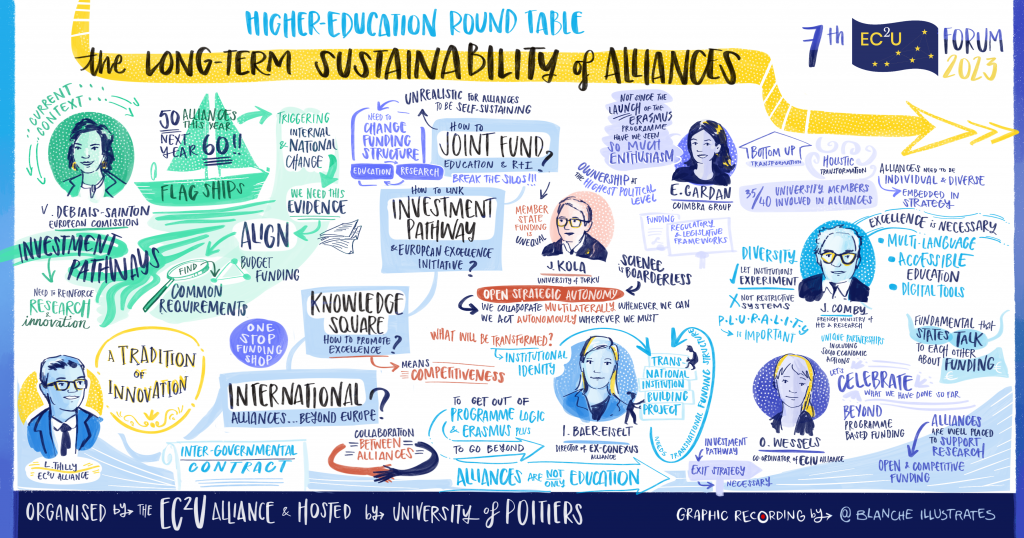 HIGHER-EDUCATION ROUND TABLE
the LONG-TERM SUSTAINABILITY of ALLIANCES
7th EC²U FORUM
2023
CURRENT
CONTEXT
V. DEBIAIS-SAINTON
EUROPEAN COMISSION
50 ALLIANCES
THIS YEAR
NEXT
YEAR 60!!
FLAG SHIPS
TRIGGERING
INTERNAL
& NATIONAL
CHANGE
WE NEED THIS
EVIDENCE
ALIGN
BUDGET
FUNDING
INVESTMENT
PATHWAYS
FIND
COMMON
REQUIREMENTS
NEED TO REINFORCE
RESEARCH
& innovation
UNREALISTIC FOR ALLIANCES
TO BE SELF-SUSTAINING
NEED TO
CHANGE
FUNDING
STRUCTURE
EDUCATION
RESEARCH
HOW TO
JOINT FUND
EDUCATION & R+I ?
BREAK THE SILOS!!!
HOW TO LINK
INVESTMENT
PATHWAY
& EUROPEAN EXCELLENCE
INITIATIVE ?
KNOWLEDGE
SQUARE
HOW TO PROMOTE
EXCELLENCE ?
MEANS
COMPETITIVENESS
ONE
STOP
FUNDING
SHOP
INTERNATIONAL
ALLIANCES... BEYOND EUROPE ?
A TRADITION
OF
INNOVATION
L. THILLY
EC²U ALLIANCE
INTER-GOVERNMENTAL
CONTRACT
COLLABORATION
BETWEEN
ALLIANCES
NOT ONCE THE
LAUNCH OF THE
ERASMUS
PROGRAMME
HAVE WE SEEN
SO MUCH
ENTHUSIASM
E. GARDAN
COIMBRA GROUP
BOTTOM UP
TRANSFORMATION
HOLISTIC
TRANSFORMATION
35/40 UNIVERSITY MEMBERS
INVOLVED IN ALLIANCES
ALLIANCES NEED TO BE
INDIVIDUAL & DIVERSE
EMBEDDED IN
STRATEGY
OWNERSHIP AT
THE HIGHEST POLITICAL
LEVEL
MEMBER
STATE
FUNDING IS
UNEQUAL
J. KOLA
UNIVERSITY OF TURKU
FUNDING
REGULATORY
& LEGISLATIVE
FRAMEWORKS
SCIENCE
is BOARDERLESS
OPEN STRATEGIC AUTONOMY
WE COLLABORATE MULTILATERALLY WHENEVER WE CAN
WE ACT AUTONOMOUSLY WHEREVER WE MUST
DIVERSITY
LET INSTITUTIONS
EXPERIMENT
X NOT RESTRICTIVE
SYSTEMS
P-L-U-R-A-L-I-T-Y
is IMPORTANT
J. COMBY
FRENCH MINISTRY of
HE & RESEARCH
EXCELLENCE is NECESSARY
• MULTI-LANGUAGE
• ACCESSIBLE
EDUCATION
• DIGITAL TOOLS
FUNDAMENTAL that
STATES TALK
TO EACH OTHER
ABOUT FUNDING
WHAT WILL BE TRANSFORMED?
INSTITUTIONAL
IDENTITY
TO GET OUT OF
PROGRAMME LOGIC
& ERASMUS PLUS
TO GO BEYOND
ALLIANCES ARE NOT ONLY EDUCATION
I. BAER-EISELT
DIRECTOR OF EX-CONEXUS
ALLIANCE
TRANS-
NATIONAL
INSTITUTION
BUILDING
PROJECT
NEEDS TRANSNATIONAL FUNDING STRUCTURE
UNIQUE PARTNERSHIPS
INCLUDING
SOCIO ECONOMIC
ACTIONS
LET'S
CELEBRATE
WHAT WE HAVE DONE SO FAR
O. WESSELS
CO-ORDINATOR OF ECIU ALLIANCE
BEYOND
PROGRAMME
BASED FUNDING
ALLIANCES
ARE WELL PLACED
TO SUPPORT
RESEARCH
OPEN & COMPETITIVE
FUNDING
INVESTMENT
PATHWAY
EXIT STRATEGY
NECESSARY
ORGANISED by THE EC²U ALLIANCE & HOSTED by UNIVERSITY of POITIERS
GRAPHIC RECORDING by @ BLANCHE ILLUSTRATES